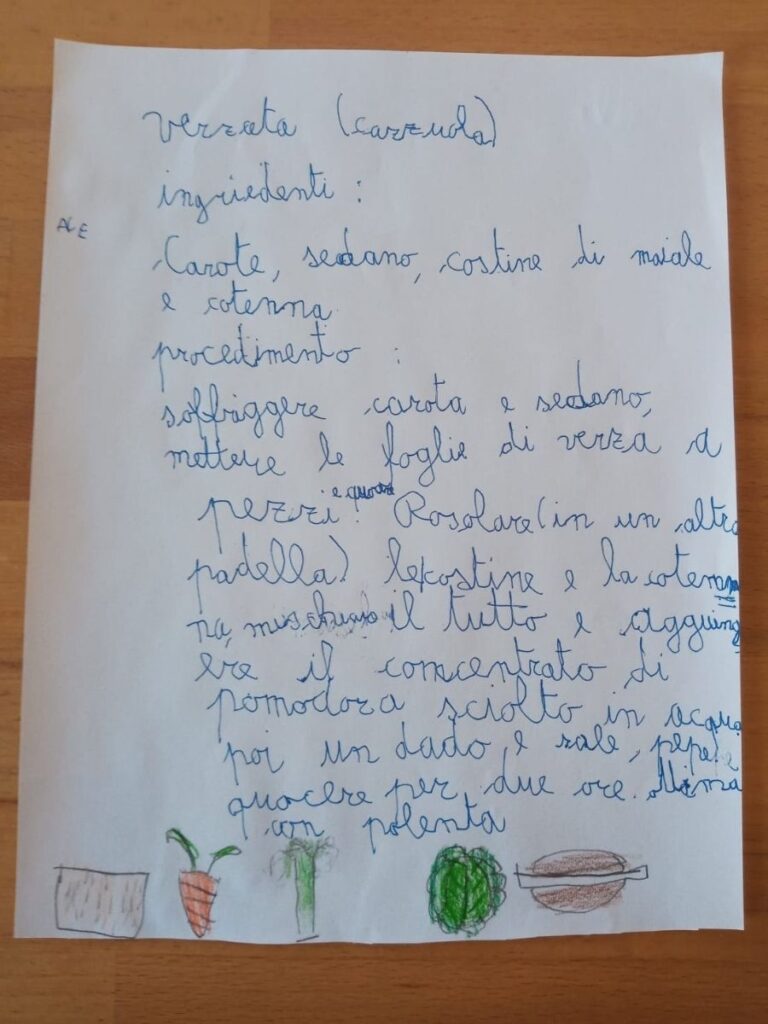 verzata (cazzuola)
ingriedenti :
ALE
Carote, sedano, costine di maiale
e cotenna
procedimento :
soffriggere carota e sedano,
mettere le foglie di verza a
pezzi e quocere. Rosolare (in un altra
padella) le costine e la coten
na, mischiare il tutto e aggiung
ere il concentrato di
pomodoro sciolto in acqua
poi un dado, e sale, pepe e
quocere per due ore. ottima
con polenta